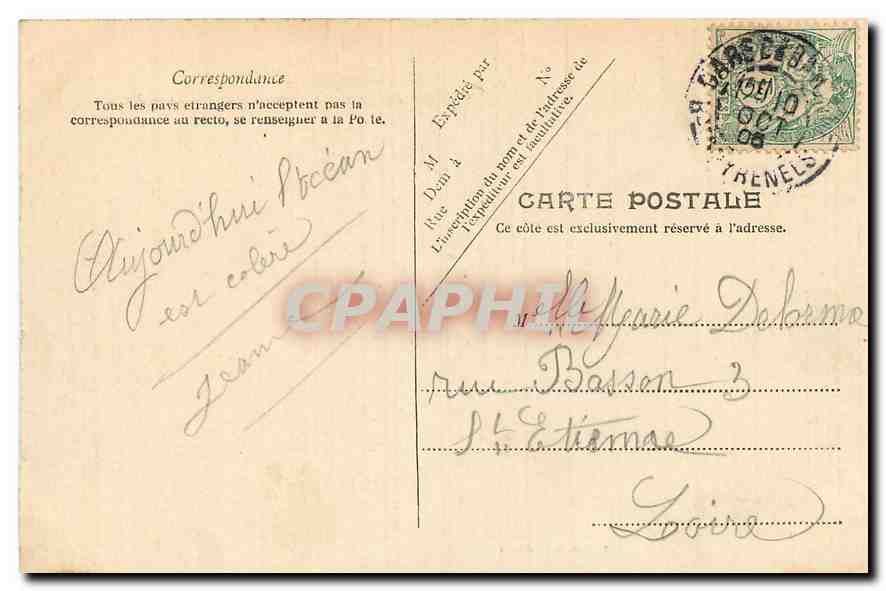 Correspondance
Tous les pays etrangers n'acceptent pas la
correspondance au recto, se renseigner à la Poste.
Aujourd'hui l'océan
est colère
Jeanne
M Expédié par
Dem à N°
Rue
L'inscription du nom et de l'adresse de
l'expéditeur est facultative.
CARTE POSTALE
Ce côte est exclusivement réservé à l'adresse.
Melle Marie Delorme
rue Basson 3
St Etienne
Loire
10
OCT
05
CPAPHIL